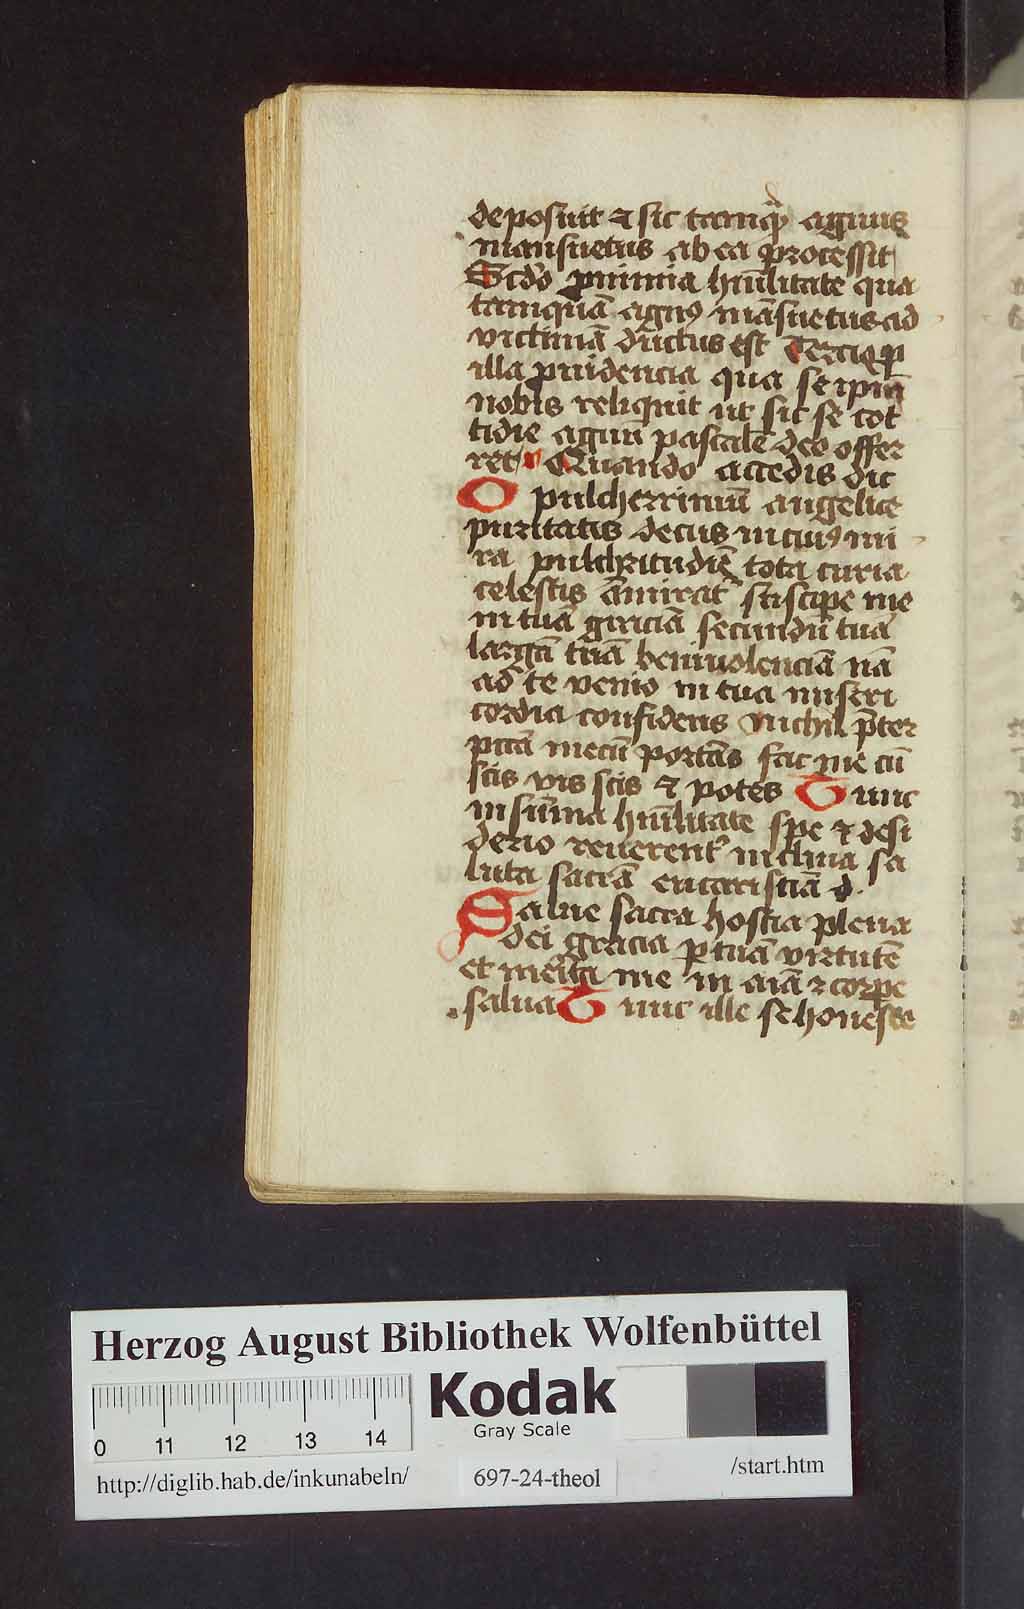 deposuit ⁊ sic tamq̄ȝ agnus
mansuetus ab ea processit
Scd̓o ꝓ nimia hūilitate qua
tamquā agnꝰ māsuetus ad
victimā ductus est Tercio ꝓ
illa prudencia qua se ip̄m
nobis reliquit ut sic se cot
tidie agnū pascalē deo offer
ret Quando accedis dic
O pulcherrimū angelice
puritatis decus in cuiꝰ mi
ra pulchritudīe tota curia
celestis āmirat᷑ suscipe me
in tuā graciā secundū tuā
largā tuā beniuolenciā nā
ad te venio in tua miseri
cordia confidens nichil p̄ter
pccā mecū portās fac me cū
scis vis scis ⁊ potes Tunc
in sūma hūilitate spe ⁊ desi
derio reuerent᷑ inclina sa
luta sacrā eucaristiā d.
Salue sacra hostia plena
dei gracia ꝑ tuā virtutē
et merita me in aiā ⁊ corpe
salua Tunc ille se honeste
Herzog August Bibliothek Wolfenbüttel
Kodak
Gray Scale
0 11 12 13 14
http://diglib.hab.de/inkunabeln/ 697-24-theol /start.htm